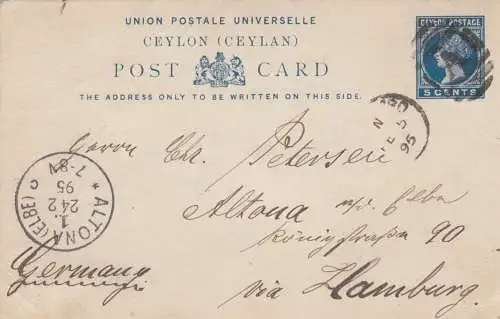 UNION POSTALE UNIVERSELLE
CEYLON (CEYLAN)
POST CARD
THE ADDRESS ONLY TO BE WRITTEN ON THIS SIDE.
CEYLON POSTAGE
5 CENTS
95
Herrn Chr. Petersen
Altona a/d. Elbe
Königstraße 90
via Hamburg.
Germany
* ALTONA (ELBE) C
1.
24 2
95
7-8N